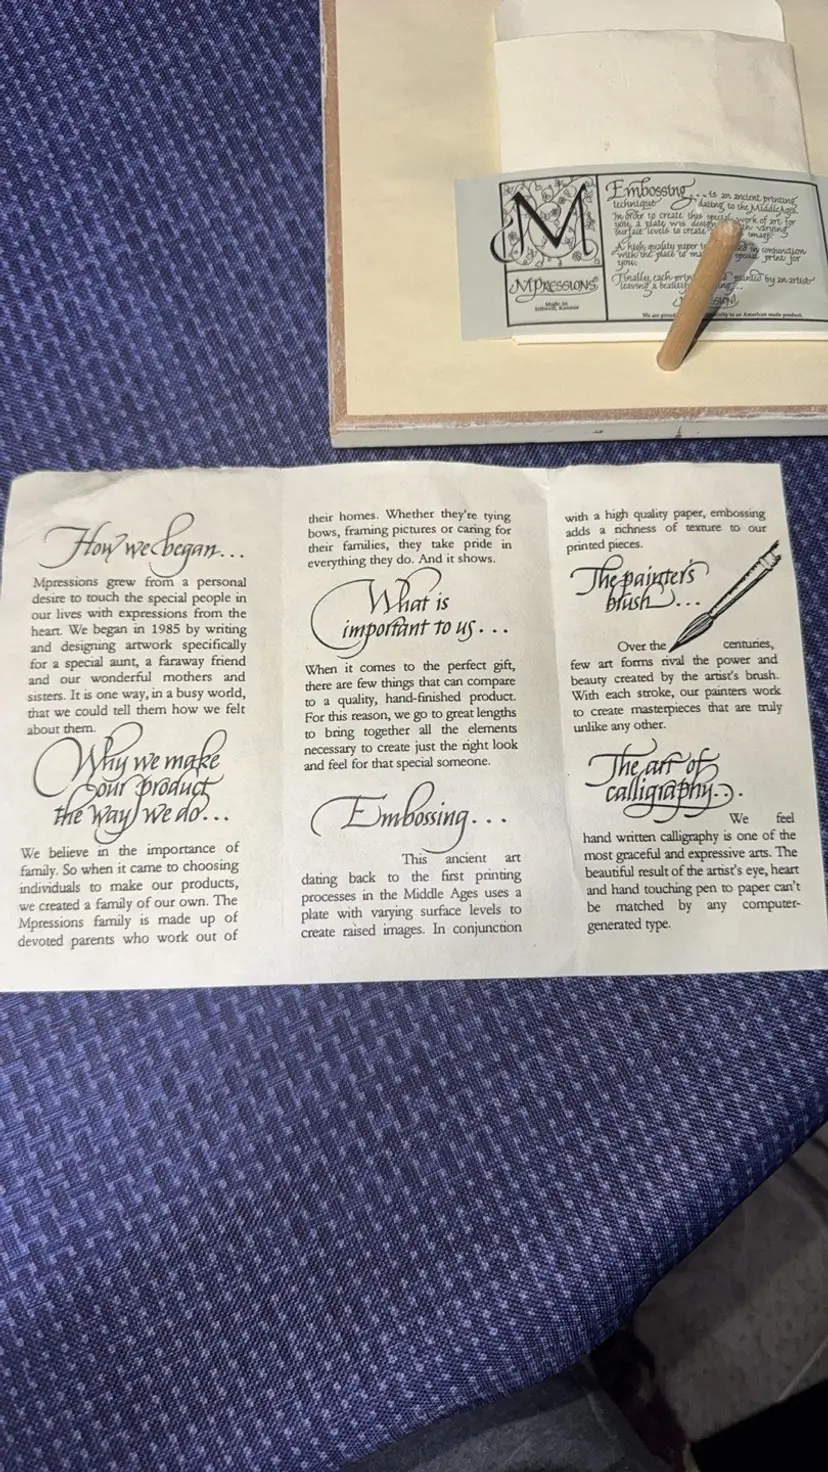 M
MPRESSIONS®
Made in
Stilwell, Kansas
Embossing... is an ancient printing
technique dating to the Middle Ages.
In order to create this special work of art for
you, a plate was with varying
surface levels to create image.
A high quality paper in conjunction
with the plate to special print for
you.
Finally, each painted by an artist
leaving a
We are to an American made product.
How we began...
Mpressions grew from a personal
desire to touch the special people in
our lives with expressions from the
heart. We began in 1985 by writing
and designing artwork specifically
for a special aunt, a faraway friend
and our wonderful mothers and
sisters. It is one way, in a busy world,
that we could tell them how we felt
about them.
Why we make
our product
the way we do...
We believe in the importance of
family. So when it came to choosing
individuals to make our products,
we created a family of our own. The
Mpressions family is made up of
devoted parents who work out of
their homes. Whether they're tying
bows, framing pictures or caring for
their families, they take pride in
everything they do. And it shows.
What is
important to us...
When it comes to the perfect gift,
there are few things that can compare
to a quality, hand-finished product.
For this reason, we go to great lengths
to bring together all the elements
necessary to create just the right look
and feel for that special someone.
Embossing...
This ancient art
dating back to the first printing
processes in the Middle Ages uses a
plate with varying surface levels to
create raised images. In conjunction
with a high quality paper, embossing
adds a richness of texture to our
printed pieces.
The painter's
brush...
Over the centuries,
few art forms rival the power and
beauty created by the artist's brush.
With each stroke, our painters work
to create masterpieces that are truly
unlike any other.
The art of
calligraphy...
We feel
hand written calligraphy is one of the
most graceful and expressive arts. The
beautiful result of the artist's eye, heart
and hand touching pen to paper can't
be matched by any computer-
generated type.